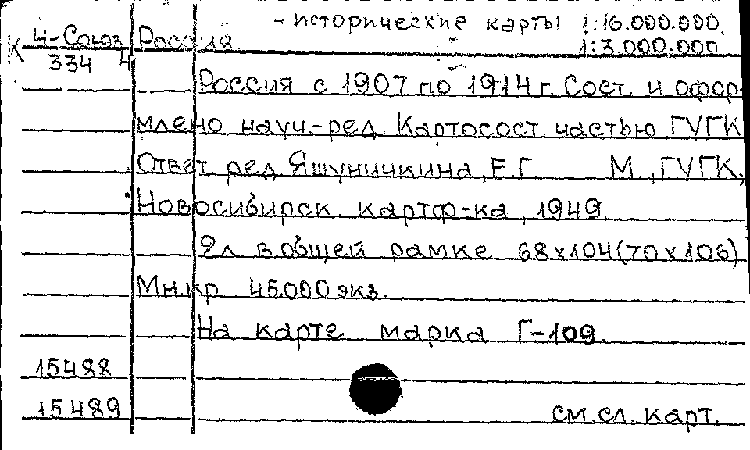 - исторические карты 1:16.000.000.
К 4-Союз Россия 1:3.000.000
334 4
Россия с 1907 по 1914 г. Сост. и офор-
млено науч.-ред. Картосост. частью ГУГК
Ответ ред. Яшуничкина, Е.Г. М., ГУГК,
Новосибирск. картф-ка, 1949.
2л в общей рамке 68х104(70х106)
Мн.кр 45.000 экз.
На карте марка Г-109.
15488
15489 см.сл. карт.